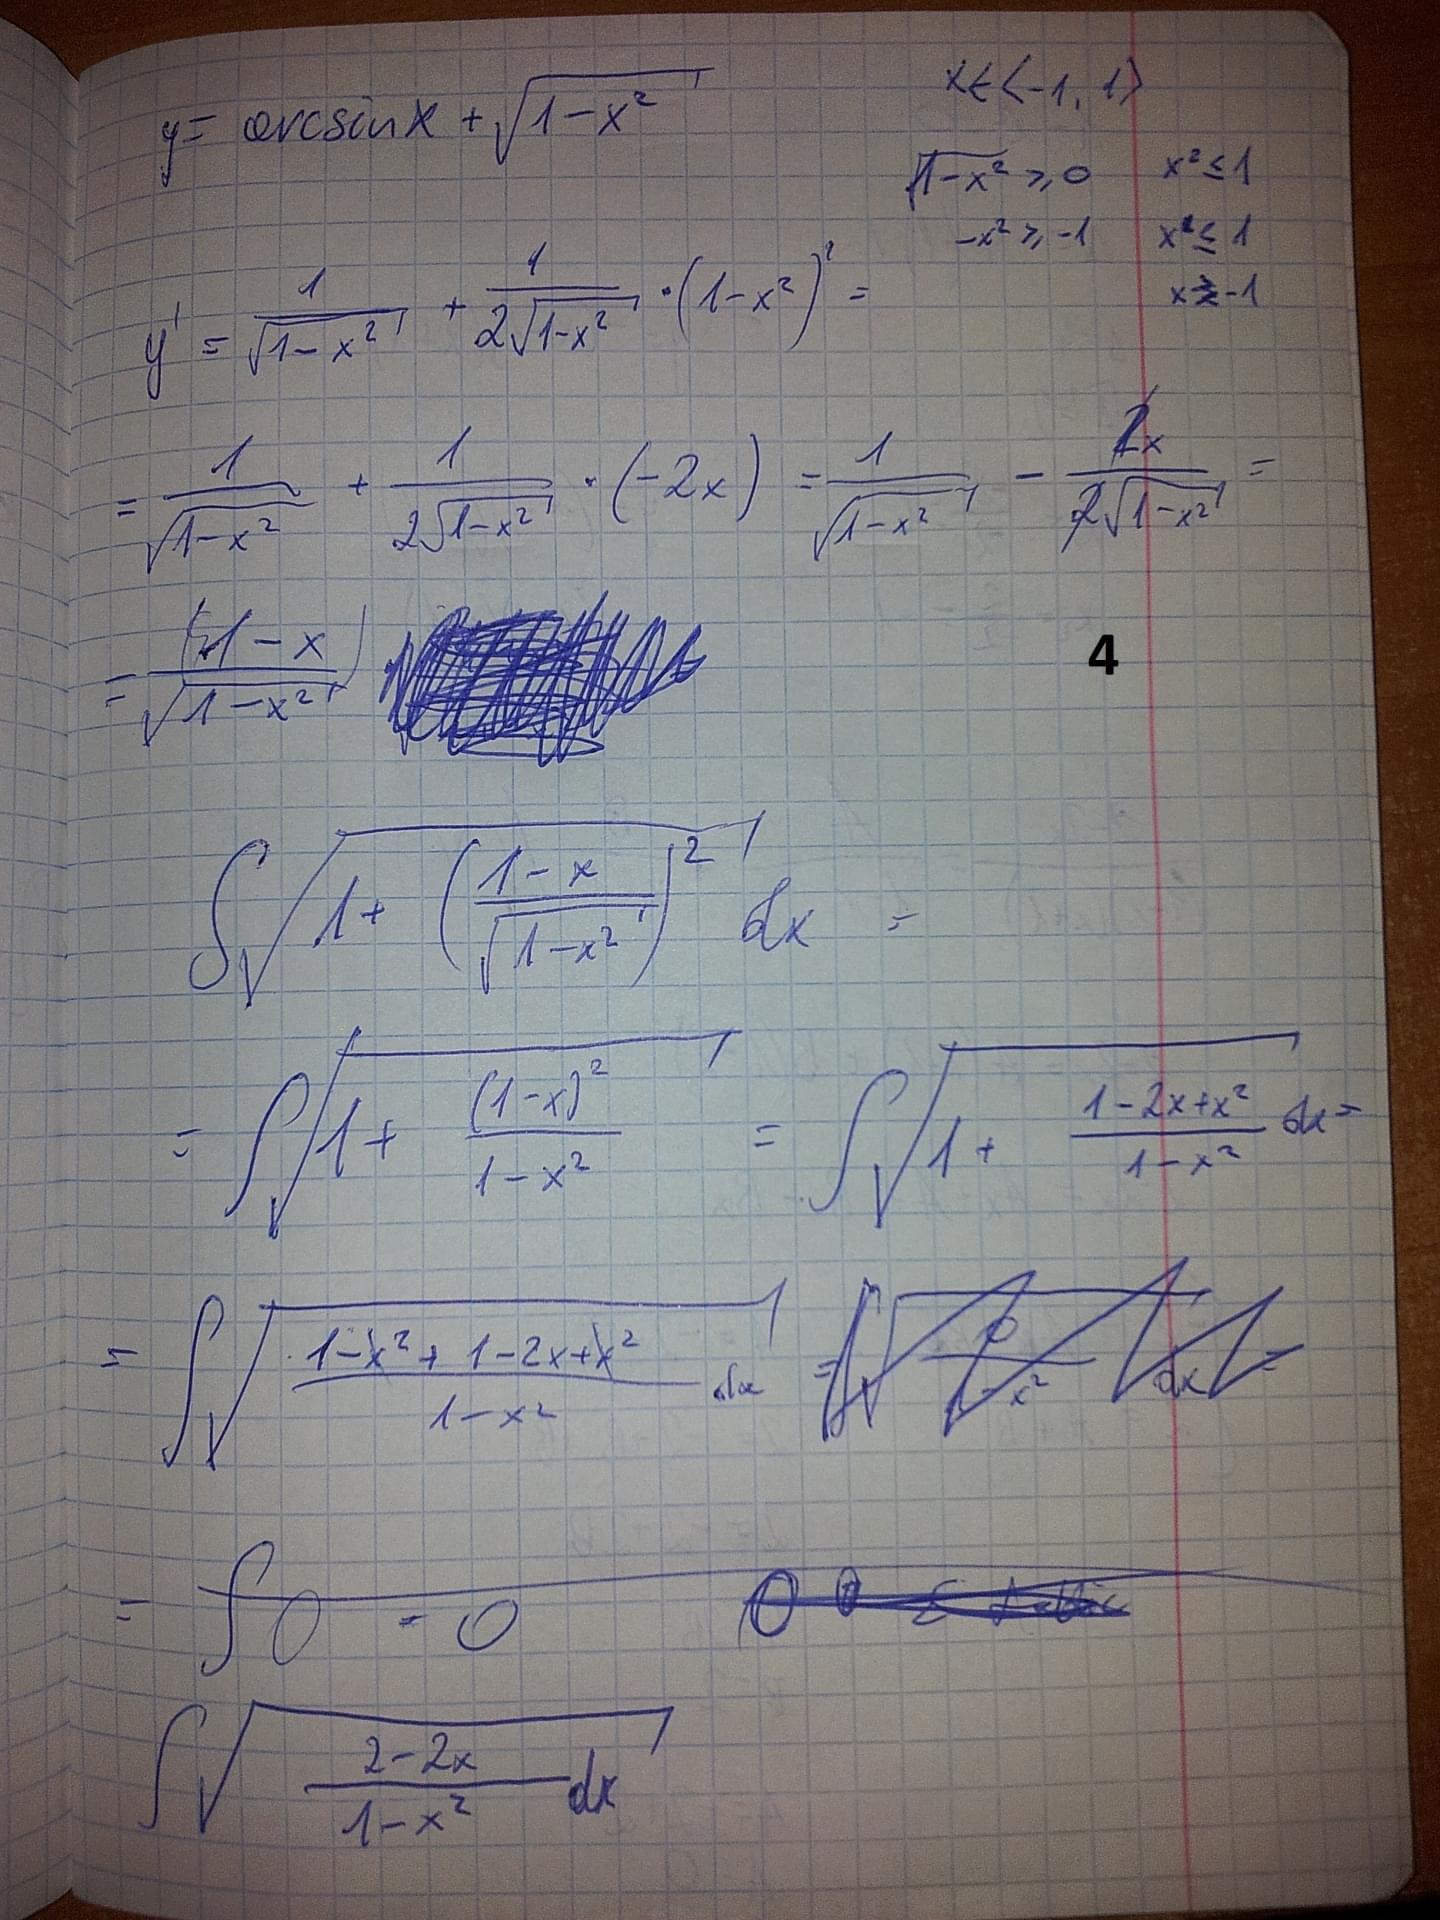 y = arcsin x + √(1-x²)
x ∈ ⟨-1, 1⟩
√(1-x²) ≥ 0  x² ≤ 1
-x² ≥ -1  x ≤ 1
x ≥ -1
y' = 1/√(1-x²) + 1/(2√(1-x²)) · (1-x²)' =
= 1/√(1-x²) + 1/(2√(1-x²)) · (-2x) = 1/√(1-x²) - 2x/(2√(1-x²)) =
= (1-x)/√(1-x²)
4
∫√(1 + ((1-x)/√(1-x²))²) dx =
= ∫√(1 + (1-x)²/(1-x²)) = ∫√(1 + (1-2x+x²)/(1-x²)) dx =
= ∫√((1-x² + 1-2x+x²)/(1-x²)) dx
= ∫0 = 0
∫√((2-2x)/(1-x²)) dx